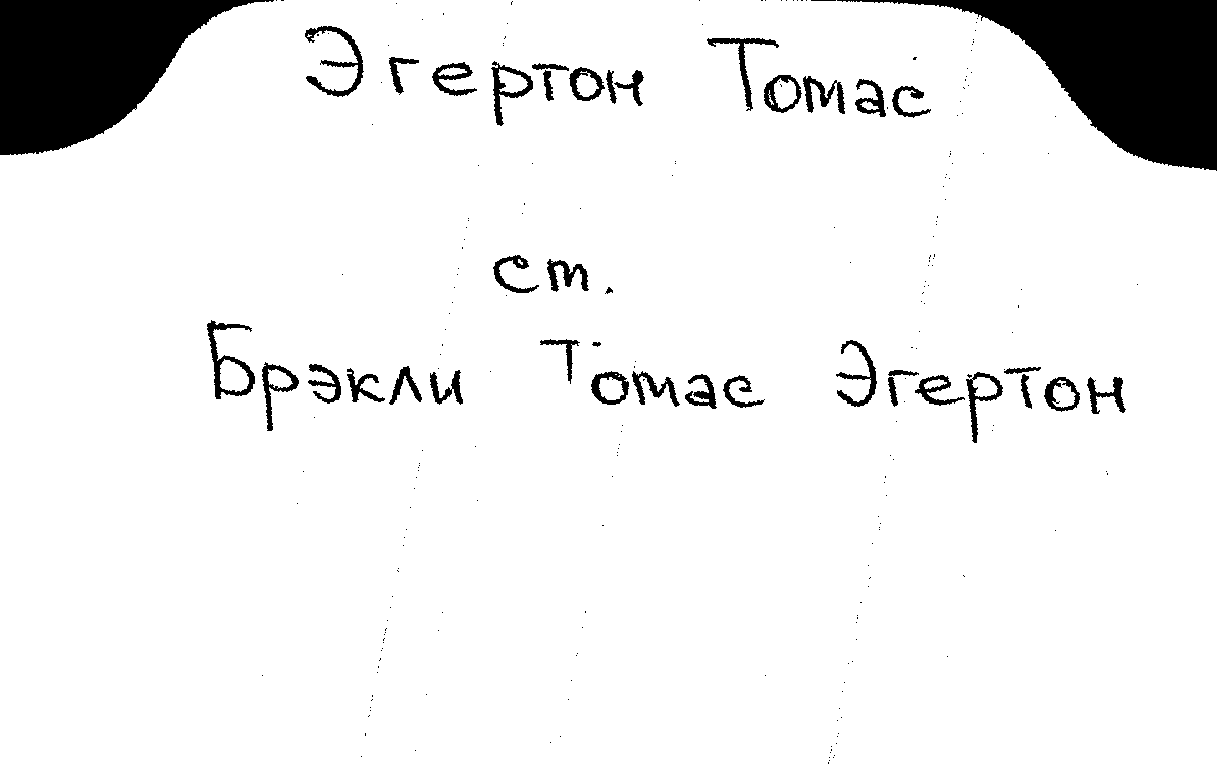 Эгертон Томас
ст.
Брэкли Томас Эгертон